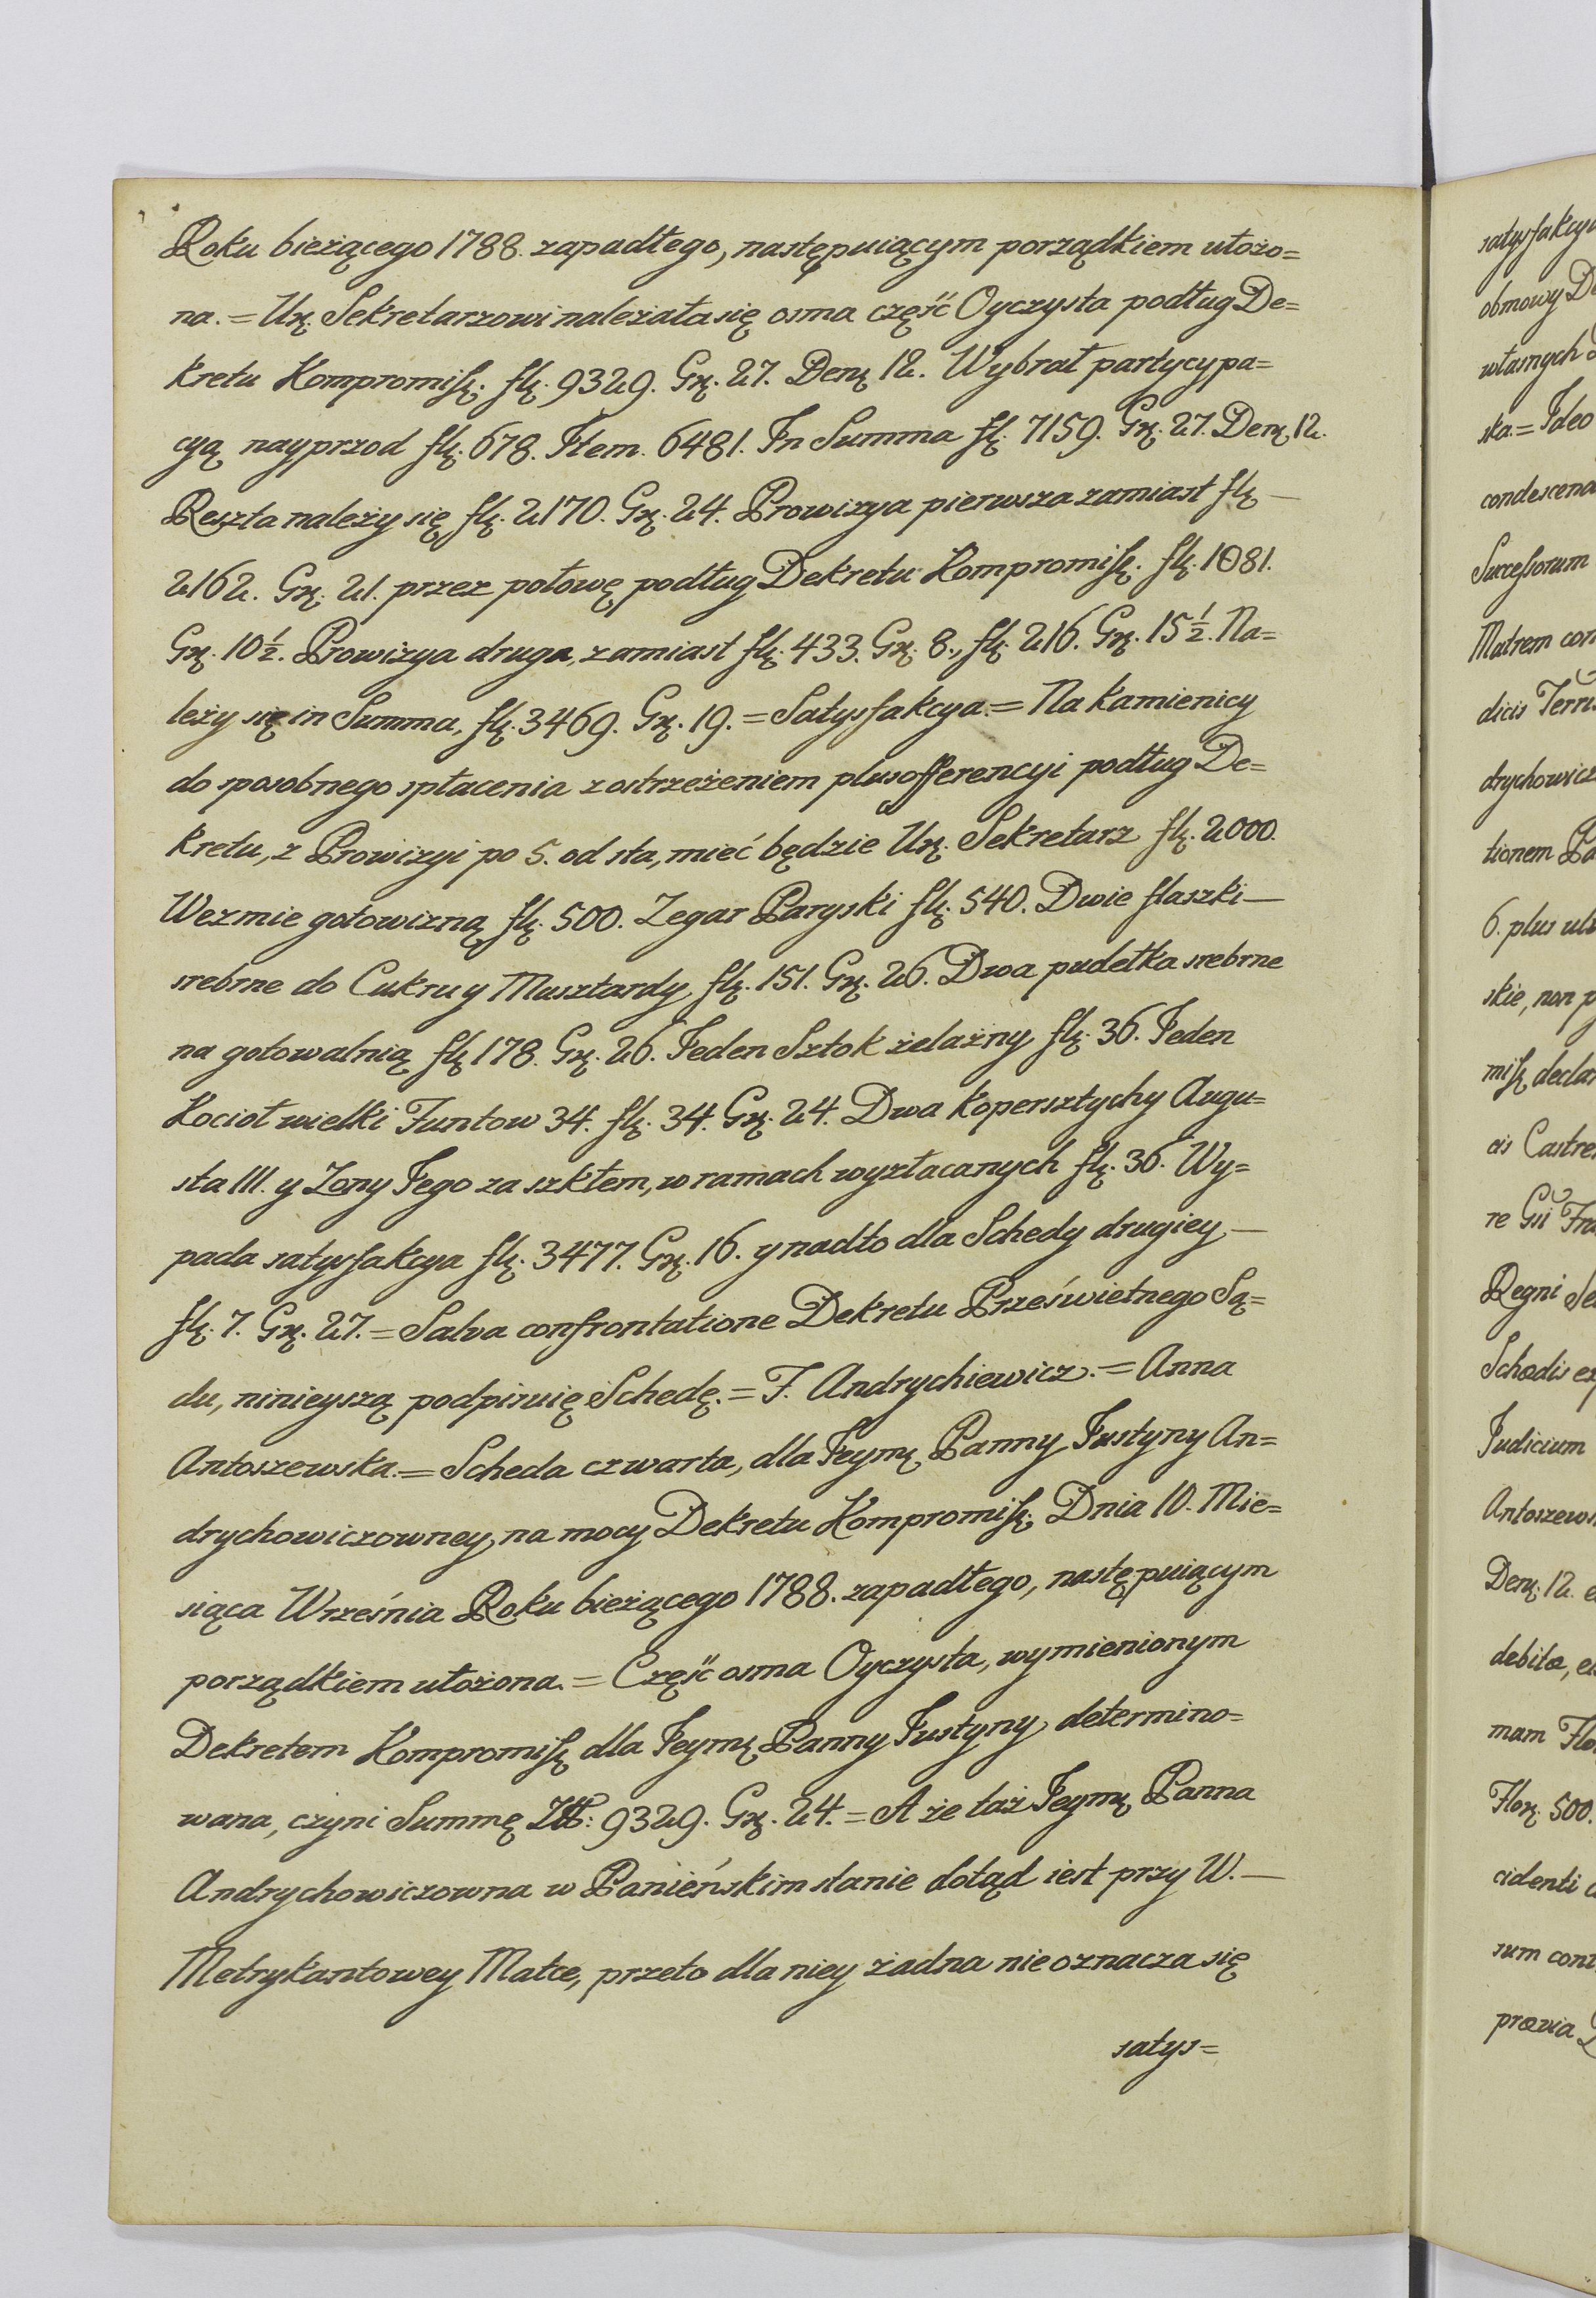 Roku bieżącego 1788. zapadłego, następuiącym porządkiem ułożo=
na. = Ur. Sekretarzowi należała się osma część Oyczysta podług De=
kretu Kompromiss. fl. 9329. Gr. 27. Den. 12. Wybrał partycypa=
cyą nayprzod fl. 678. Item. 6481. In Summa fl. 7159. Gr. 27. Den. 12.
Reszta należy się fl. 2170. Gr. 24. Prowizya pierwsza zamiast fl. —
2162. Gr. 21. przez połowę podług Dekretu Kompromiss. fl. 1081.
Gr. 10½. Prowizya druga, zamiast fl. 433. Gr. 8., fl. 216. Gr. 15½. Na=
leży się in Summa, fl. 3469. Gr. 19. = Satysfakcya. = Na kamienicy
do sposobnego spłacenia z ostrzeżeniem plusofferencyi podług De=
kretu, z Prowizyi po 5. od sta, mieć będzie Ur. Sekretarz fl. 2000.
Wezmie gotowizną fl. 500. Zegar Paryski fl. 540. Dwie flaszki —
srebrne do Cukru y Musztardy fl. 151. Gr. 26. Dwa pudełka srebrne
na gotowalnią fl. 178. Gr. 26. Jeden Sztok żelazny fl. 36. Jeden
Kocioł wielki Funtow 34. fl. 34. Gr. 24. Dwa kopersztychy Augu=
sta III. y Zony Jego za szkłem, w ramach wyzłacanych fl. 36. Wy=
pada satysfakcya fl. 3477. Gr. 16. y nadto dla Schedy drugiey —
fl. 7. Gr. 27. = Salva confrontatione Dekretu Prześwietnego Są=
du, ninieyszą podpisuię Schedę. = J. Andrychiewicz. = Anna
Antoszewska. = Scheda czwarta, dla Jeym. Panny Justyny An=
drychowiczowney, na mocy Dekretu Kompromiss. Dnia 10. Mie=
siąca Września Roku bieżącego 1788. zapadłego, następuiącym
porządkiem ułożona. = Część osma Oyczysta, wymienionym
Dekretem Kompromiss. dla Jeym. Panny Justyny determino=
wana, czyni Summę Zł: 9329. Gr. 24. = A że taż Jeym. Panna
Andrychowiczowna w Panieńskim stanie dotąd iest przy W. —
Metrykantowey Matce, przeto dla niey żadna nie oznacza się
satys=
satysfakcy
obmowy
własnych
ska. = Ideo
condescen
Successorum
Matrem con
dicis Terr
drychowicz
tionem
6. plus
skie, non
miss. decla
cis Castre
re
Regni
Schedis
Judicium
Antoszews
Den. 12.
debita,
mam
Flor. 500.
cidenti
sum con
prævia